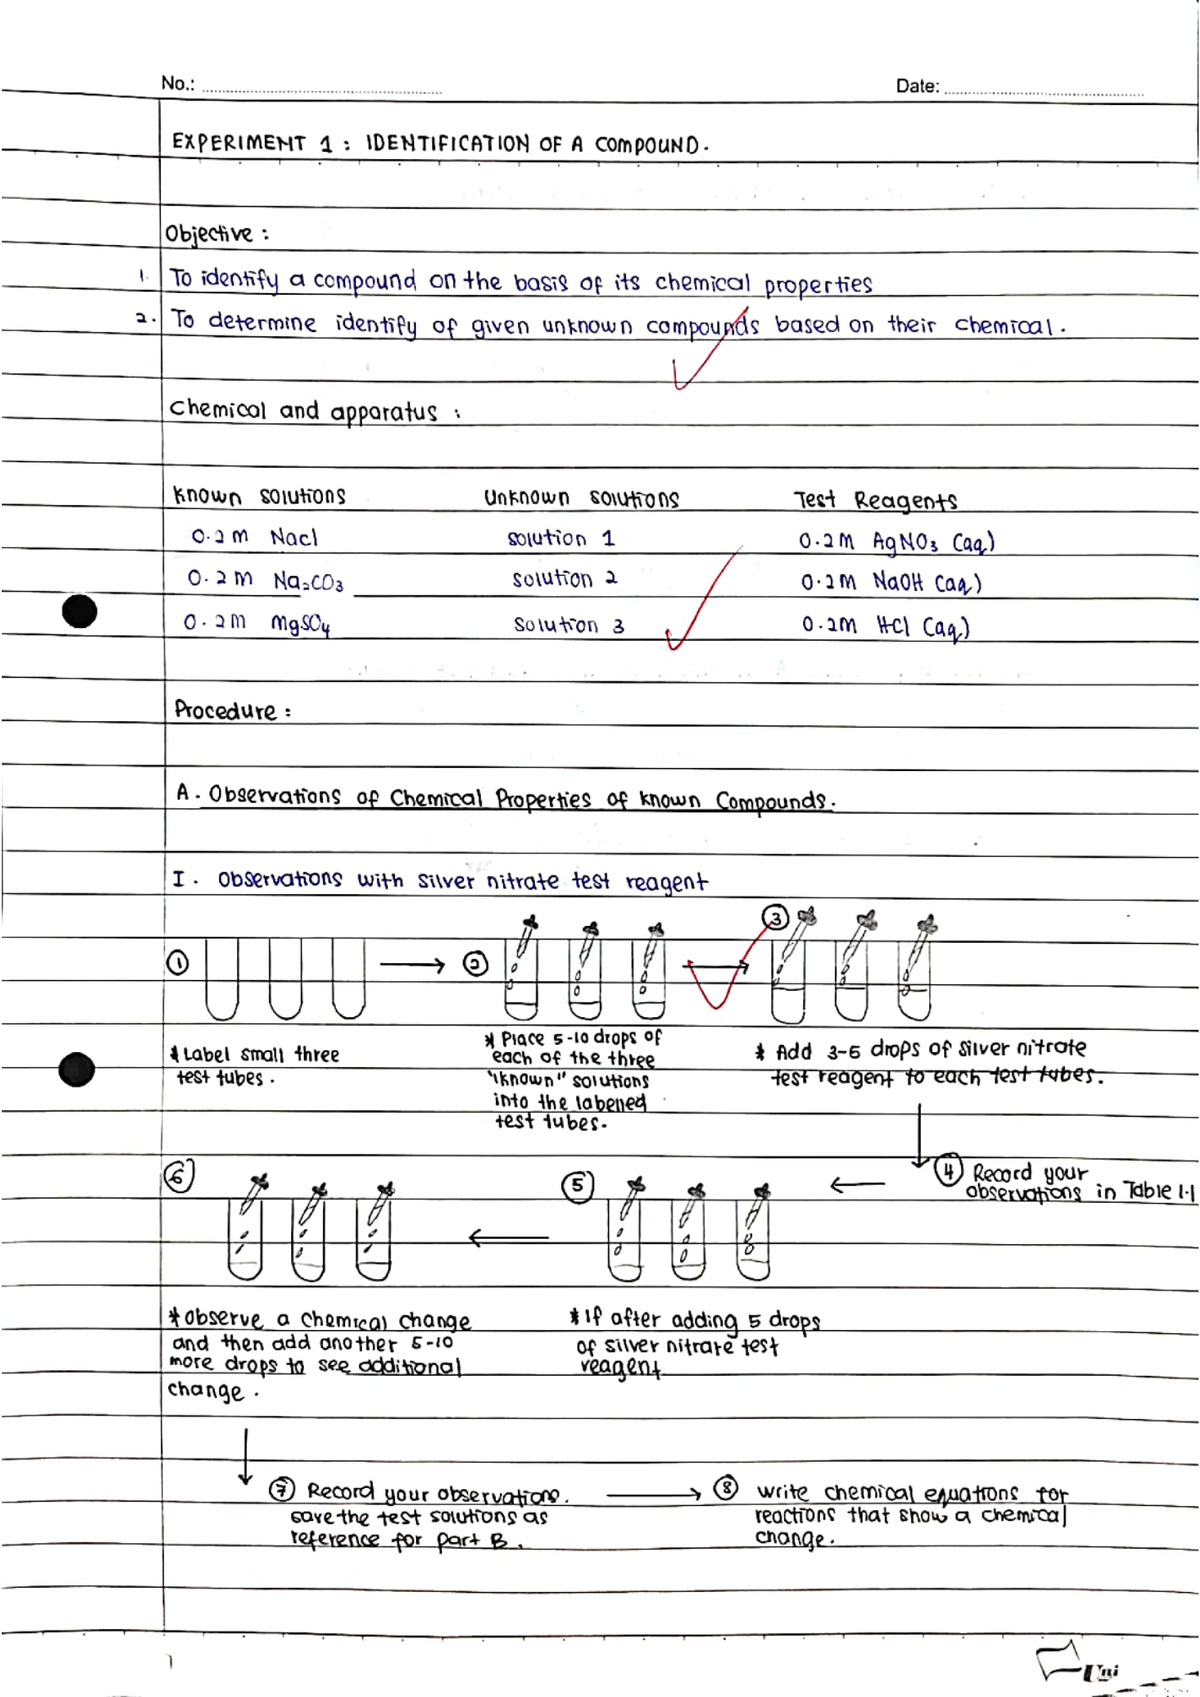 No.:
Date:
EXPERIMENT 1 : IDENTIFICATION OF A COMPOUND.
Objective :
1. To identify a compound on the basis of its chemical properties
2. To determine identify of given unknown compounds based on their chemical.
Chemical and apparatus :
Known solutions Unknown solutions Test Reagents
0.2M NaCl solution 1 0.2M AgNO₃ (aq)
0.2M Na₂CO₃ solution 2 0.2M NaOH (aq)
0.2M MgSO₄ solution 3 0.2M HCl (aq)
Procedure :
A. Observations of Chemical Properties of Known Compounds.
I. Observations with silver nitrate test reagent
1
2
3
* Label small three
test tubes.
* Place 5-10 drops of
each of the three
"known" solutions
into the labelled
test tubes.
* Add 3-5 drops of silver nitrate
test reagent to each test tubes.
4 Record your
observations in Table 1.1
5
* If after adding 5 drops
of silver nitrate test
reagent
6
* Observe a chemical change
and then add another 5-10
more drops to see additional
change.
7 Record your observations.
save the test solutions as
reference for part B.
8 write chemical equations for
reactions that show a chemical
change.
1
Uni